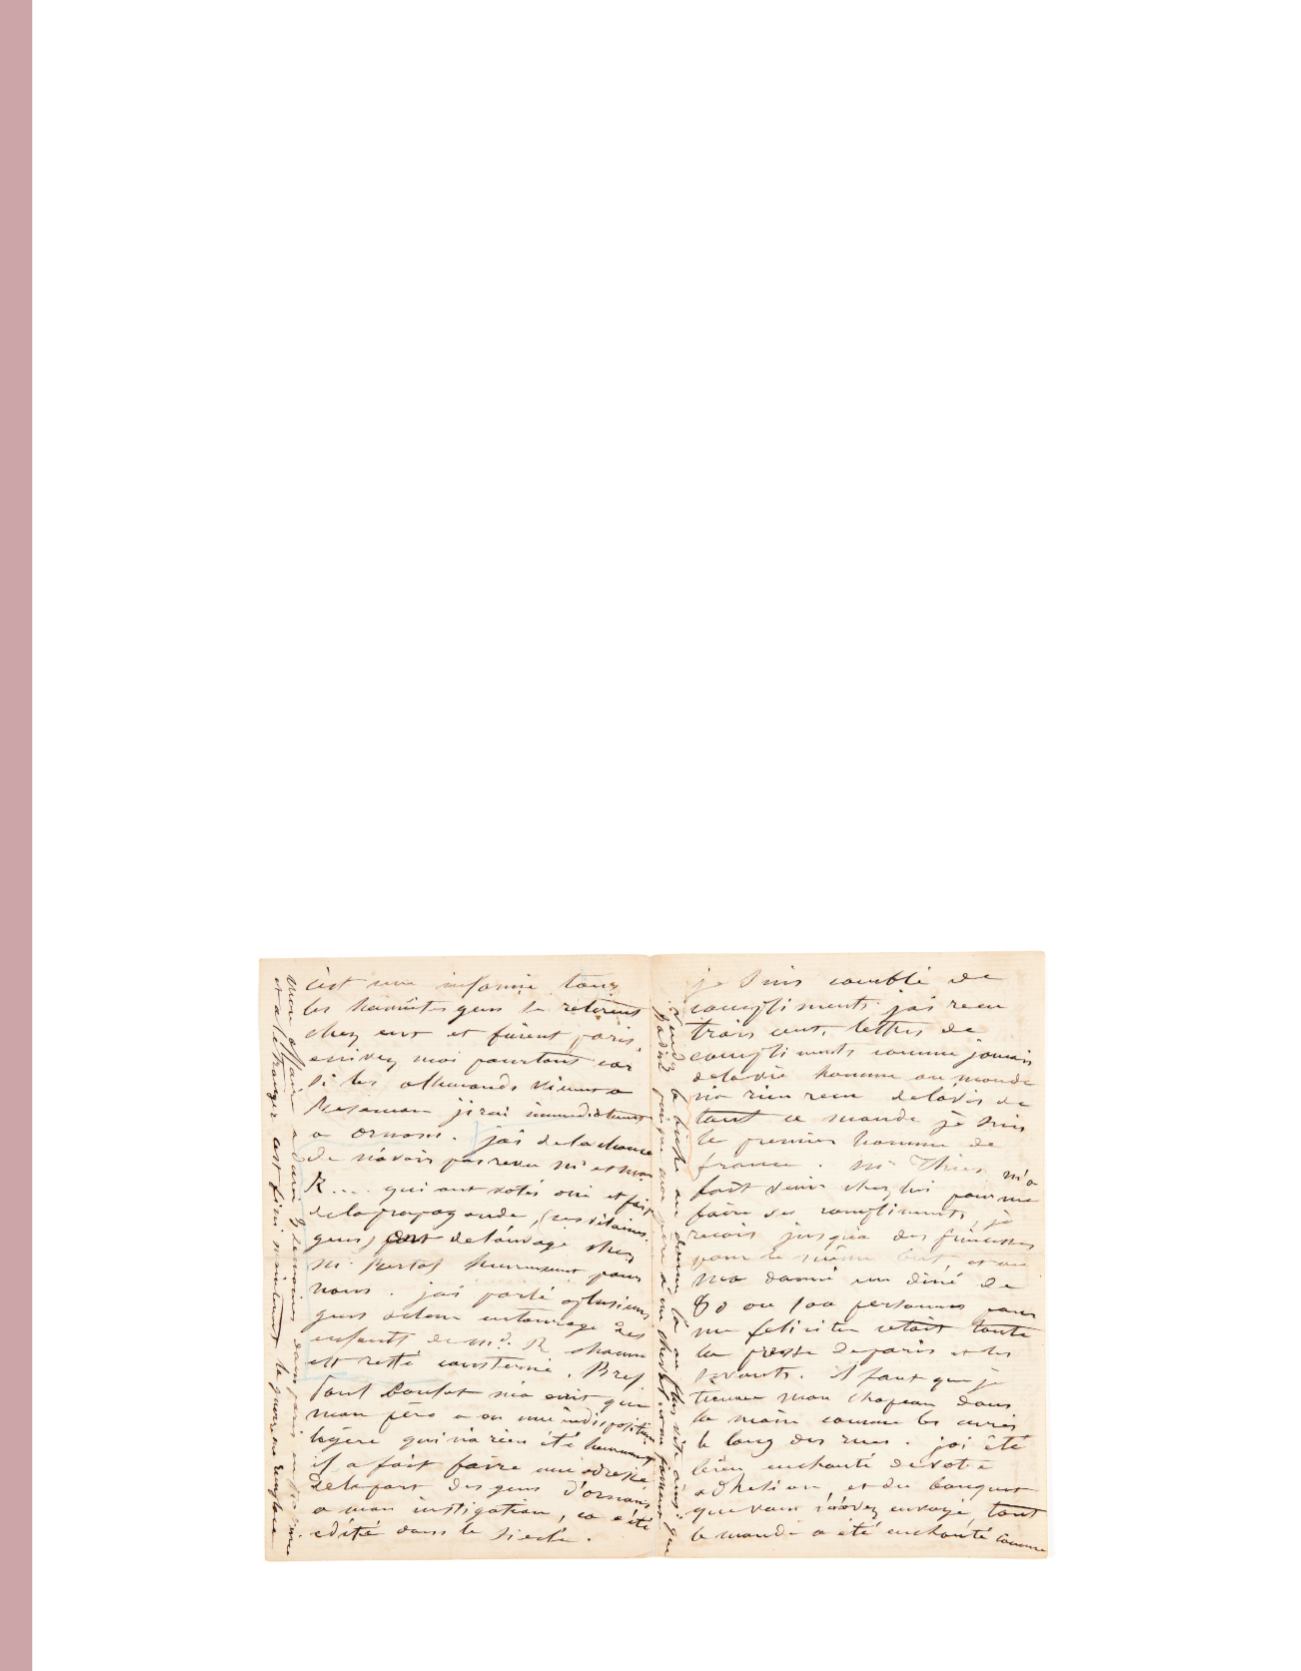 c'est une infamie tous
les honnêtes gens se retirent
chez eux et fuient paris,
ecrivez moi pourtant car
si les allemands vienne a
Besancon j'irai immediatement
a ornans. j'ai de la chance
de n'avoir pas revu mr et mme
R.... qui ont votés oui et fait
de la propagande, (ces vilains
gens) sont de louvage chez
mr heureusement pour
nous. j'ai parlé a plusieurs
gens de leur entourage des
enfants de md. R chacun
est resté consterné. Bref
tout m'a ecrit que
mon père a eu une indisposition
legère qui n'a rien été heureusement
il a fait faire une adresse
de la part des gens d'ornans
a mon instigation, ca été
edité dans le Siecle.
je suis comblé de
compliments j'ai recu
trois cent, lettres de
compliments comme jamais
de la vie homme au monde
n'a rien recu de l'avis de
tout ce monde je suis
le premier homme de
france. mr Thiers m'a
fait venir chez lui pour me
faire des compliments, je
recois jusqu'a des princesses
pour le même but, et on
m'a donné un diné de
80 ou 100 personnes pour
me feliciter cétait toute
la presse de paris et les
savants. il faut que je
tienne mon chapeau dans
la main comme les curés
le long des rues. j'ai été
bien enchanté de votre
adhesion, et du bouquet
que vous m'avez envoyé, tout
le monde a été enchanté comme